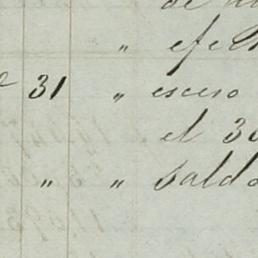 de
" efe
31 " esceso
el 30
" " Saldo